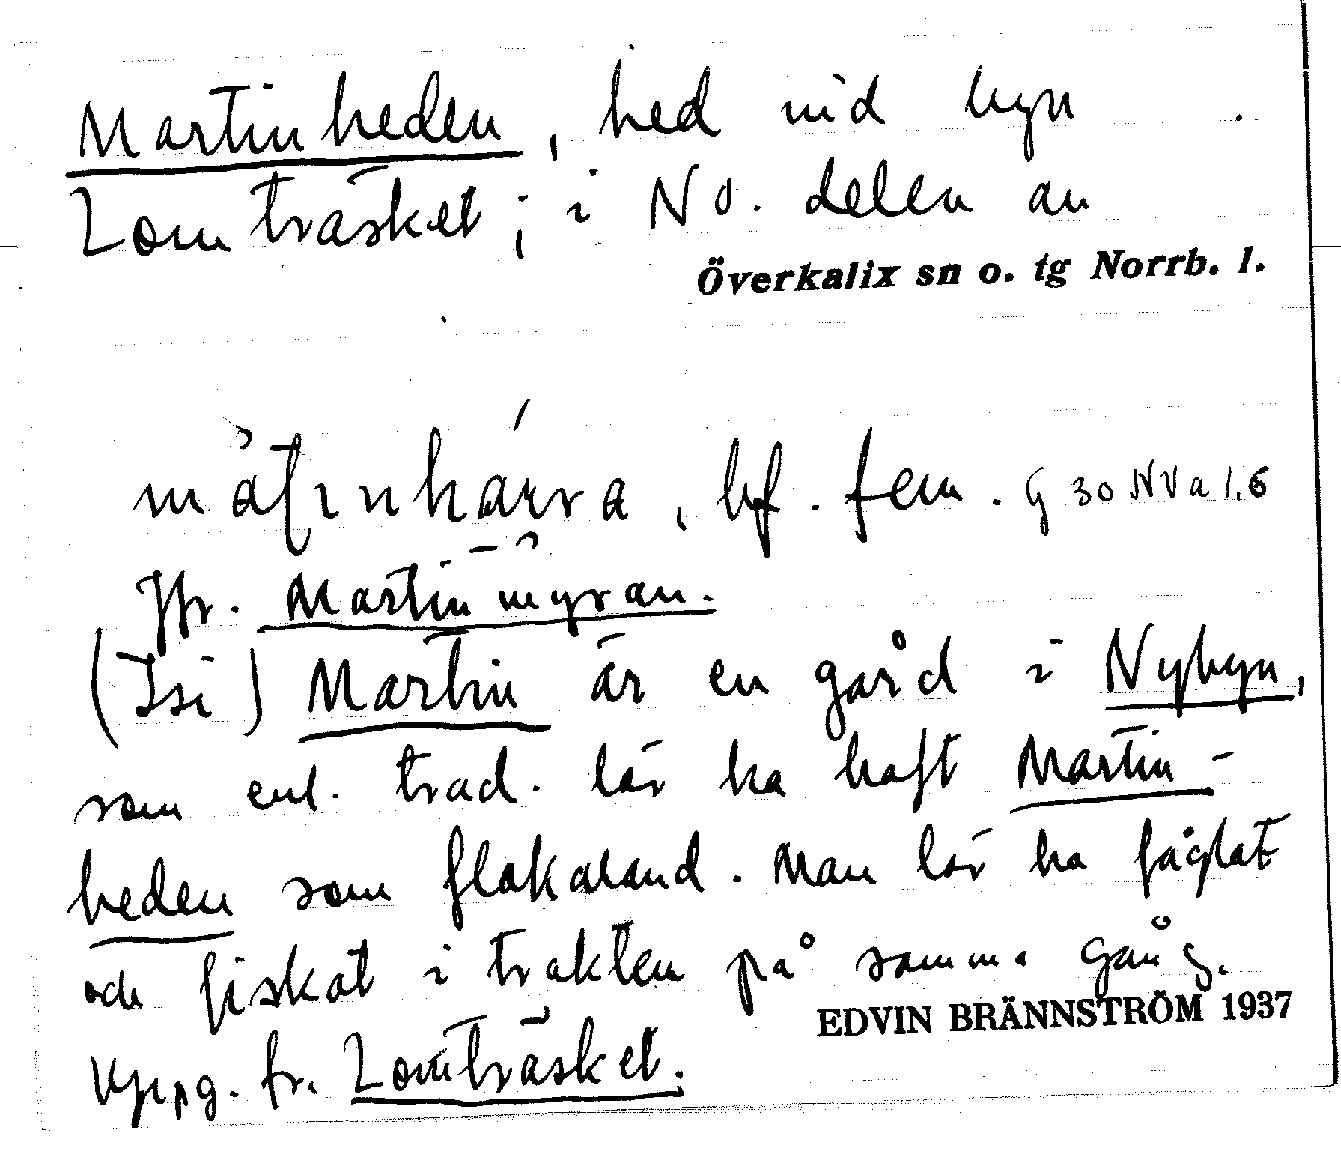 Martinheden, hed vid byn
Lomträsket; i NO. delen av
Överkalix sn o. tg Norrb. l.
bf. fem. G 30 NV a 1.6
Jfr. Martinmyran.
Martin är en gård i Nybyn,
som enl. trad. lär ha haft Martin-
heden som flakaland. Man lär ha fåglat
och fiskat i trakten på samma gång.
EDVIN BRÄNNSTRÖM 1937
Uppg. fr. Lomträsket.